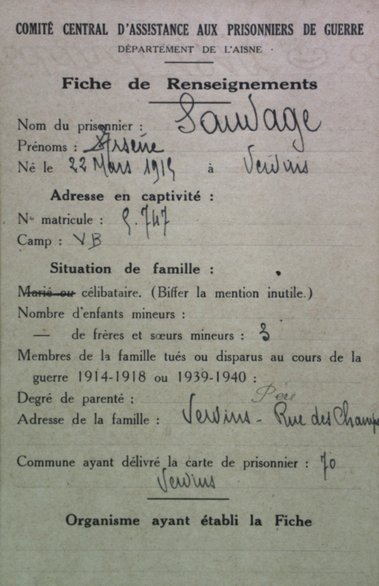 COMITÉ CENTRAL D'ASSISTANCE AUX PRISONNIERS DE GUERRE
DÉPARTEMENT DE L'AISNE
Fiche de Renseignements
Nom du prisonnier : Sauvage
Prénoms : Arsène
Né le 22 Mars 1915 à Vervins
Adresse en captivité :
N° matricule : 9.747
Camp : VB
Situation de famille :
Marié ou célibataire. (Biffer la mention inutile.)
Nombre d'enfants mineurs :
— de frères et sœurs mineurs : 3
Membres de la famille tués ou disparus au cours de la
guerre 1914-1918 ou 1939-1940 :
Degré de parenté : Père
Adresse de la famille : Vervins - Rue des Champs
Commune ayant délivré la carte de prisonnier : 70
Vervins
Organisme ayant établi la Fiche